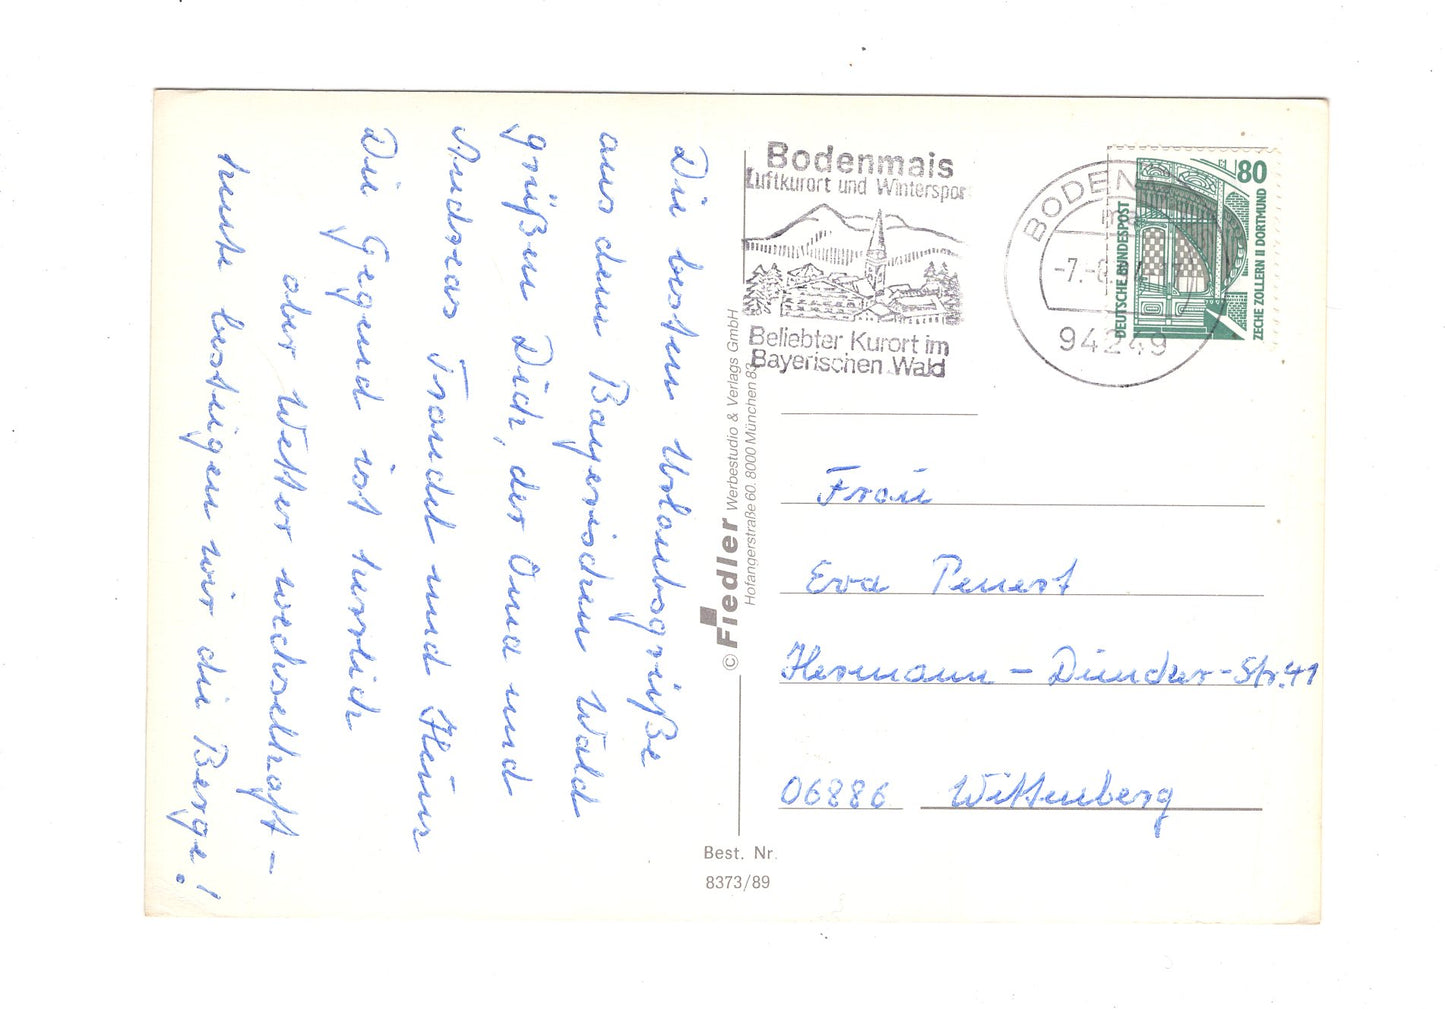 Die besten Urlaubsgrüße
aus dem Bayerischen Wald
grüßen Dich, der Oma und
Andreas Traudel und Heinz
Die Gegend ist herrlich
aber Wetter wechselhaft –
heute besteigen wir die Berge!
Bodenmais
Luftkurort und Winterspor
Beliebter Kurort im
Bayerischen Wald
BODENM
94249
80
DEUTSCHE BUNDESPOST
ZECHE ZOLLERN II DORTMUND
© Fiedler Werbestudio & Verlags GmbH
Hofangerstraße 60. 8000 München 83
Frau
Eva Penert
Hermann – Duncker-Str. 41
06886 Wittenberg
Best. Nr.
8373/89